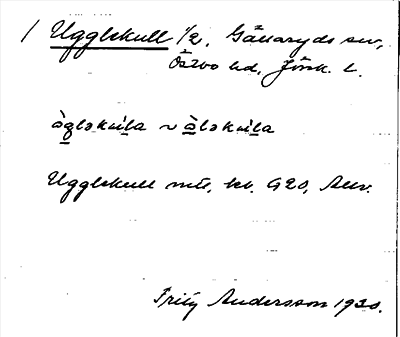 / Ugglekull 1/2, Gällaryds sn,
Östbo hd, Jönk. l.
ò̱gləku̱la ~ ò̱ləku̱la
Ugglekull mtl, kb. G20, Anv.
Fritz Andersson 1930.